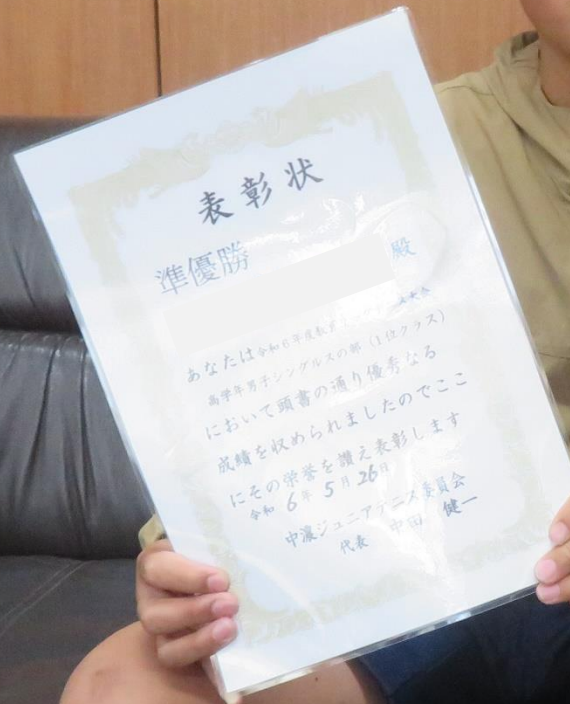 表彰状
準優勝
殿
あなたは令和6年度 大会
高学年男子シングルスの部（1位クラス）
において頭書の通り優秀なる
成績を収められましたのでここ
にその栄誉を讃え表彰します
令和6年5月26日
中濃ジュニアテニス委員会
代表 中田 健一